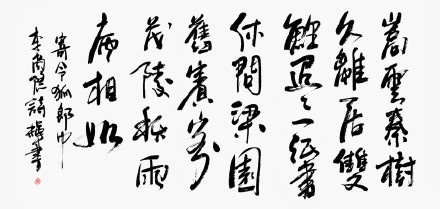 嵩雲秦樹
久離居雙
鯉迢迢一紙書
休問梁園
舊賓客
茂陵秋雨
病相如
寄令狐郎中
李商隱詩
書